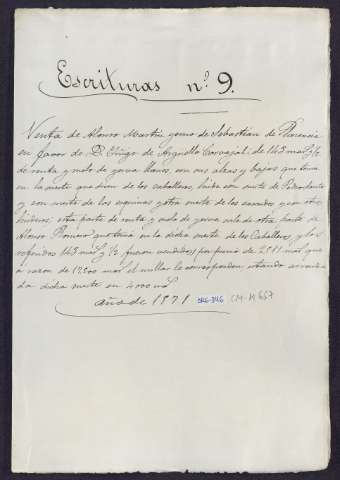 Escrituras nº 9.
Venta de Alonso Martin yerno de Sebastian de Plasencia
en favor de D. Iñigo de Arguello Carvajal: de 143 mas y ½
de renta y suelo de yerva llanos, con sus alzas y bajas que tenia
en la suerte que dicen de los caballeros, linda con suerte de
y con suerte de las espinas y otra suerte de los asnados y con otros
linderos; esta parte de renta y suelo de yerva sale de otra parte de
Alonso Romero que tenia en la dicha suerte de los Caballeros, y los
referidos 143 mas y ½ fueron vendidos por precio de 2511 mas que
á razon de 17500 mas el millar le corresponden estando arrendada
la dicha suerte en 4000 mas
año de 1571 CM-M 657